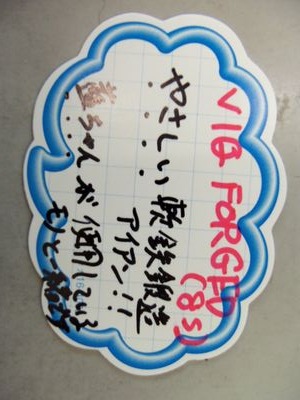 VIQ FORGED
(8s)
やさしい軟鉄鍛造
アイアン!!
藍ちゃんが使用している
モノと